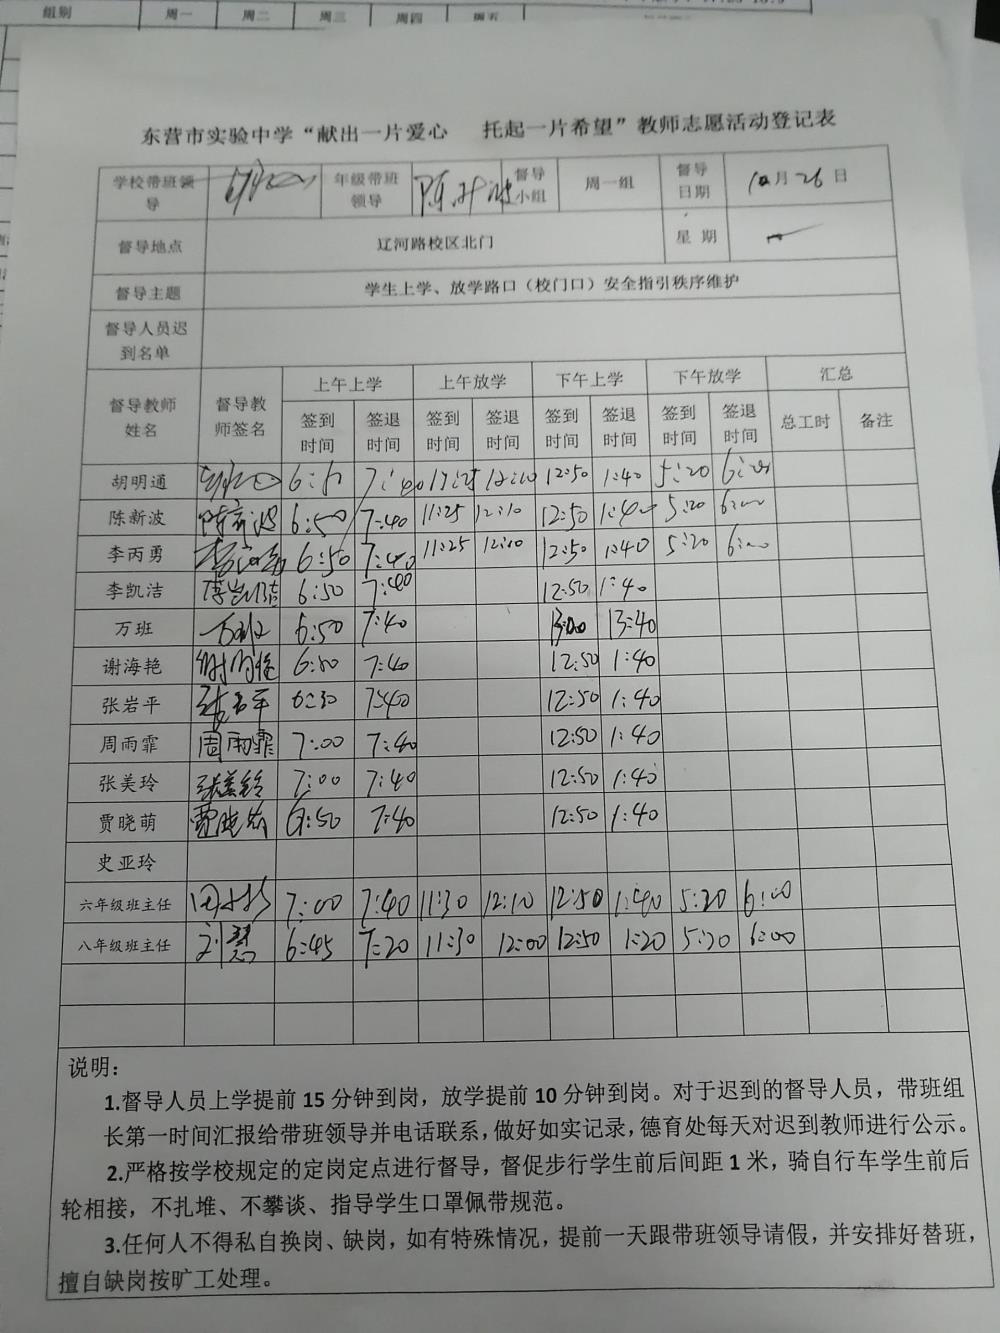 组别 周一 周二 周三 周四 周五
东营市实验中学“献出一片爱心 托起一片希望”教师志愿活动登记表
学校带班领导 年级带班领导 陈新波 督导小组 周一组 督导日期 10月26日
督导地点 辽河路校区北门 星 期 一
督导主题 学生上学、放学路口（校门口）安全指引秩序维护
督导人员迟到名单
督导教师姓名 督导教师签名 上午上学 上午放学 下午上学 下午放学 汇总
签到时间 签退时间 签到时间 签退时间 签到时间 签退时间 签到时间 签退时间 总工时 备注
胡明通 12:10 12:50 1:40 5:20
陈新波 陈新波 6:50 7:40 11:25 12:10 12:50 1:40 5:20 6:00
李丙勇 李丙勇 6:50 7:40 11:25 12:10 12:50 1:40 5:20 6:00
李凯洁 李凯洁 6:50 7:40 12:50 1:40
万班 万班 6:50 7:40 13:00 13:40
谢海艳 谢海艳 6:50 7:40 12:50 1:40
张岩平 张岩平 6:50 7:40 12:50 1:40
周雨霏 周雨霏 7:00 7:40 12:50 1:40
张美玲 张美玲 7:00 7:40 12:50 1:40
贾晓萌 贾晓萌 6:50 7:40 12:50 1:40
史亚玲
六年级班主任 7:00 7:40 11:30 12:10 12:50 1:40 5:20 6:00
八年级班主任 刘慧 6:45 7:20 11:30 12:00 12:50 1:20 5:20 6:00
说明：
1.督导人员上学提前 15 分钟到岗，放学提前 10 分钟到岗。对于迟到的督导人员，带班组
长第一时间汇报给带班领导并电话联系，做好如实记录，德育处每天对迟到教师进行公示。
2.严格按学校规定的定岗定点进行督导，督促步行学生前后间距 1 米，骑自行车学生前后
轮相接，不扎堆、不攀谈、指导学生口罩佩带规范。
3.任何人不得私自换岗、缺岗，如有特殊情况，提前一天跟带班领导请假，并安排好替班，
擅自缺岗按旷工处理。